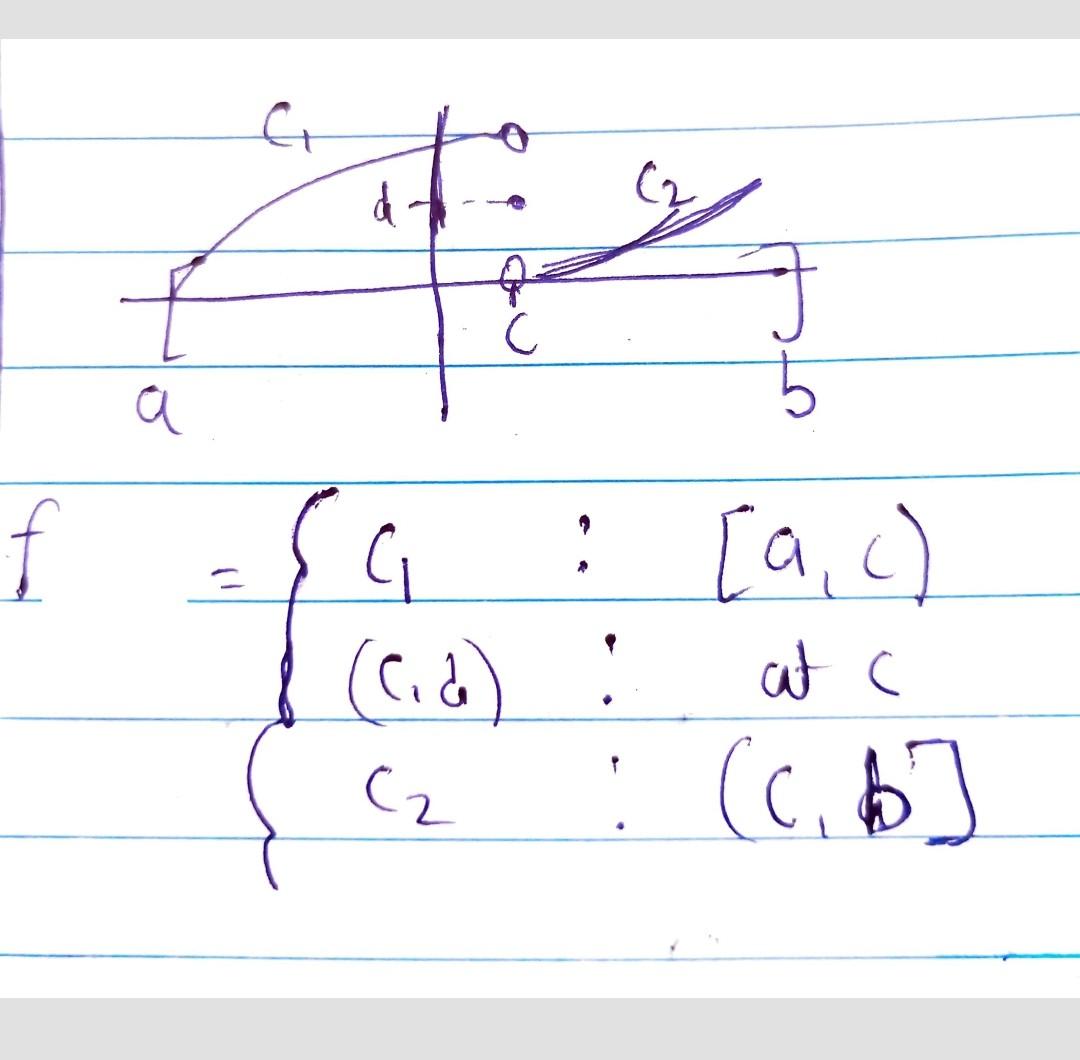 C₁
d
C₂
c
a
b
f = { C₁ : [a, c)
(c, d) : at c
C₂ : (c, b]